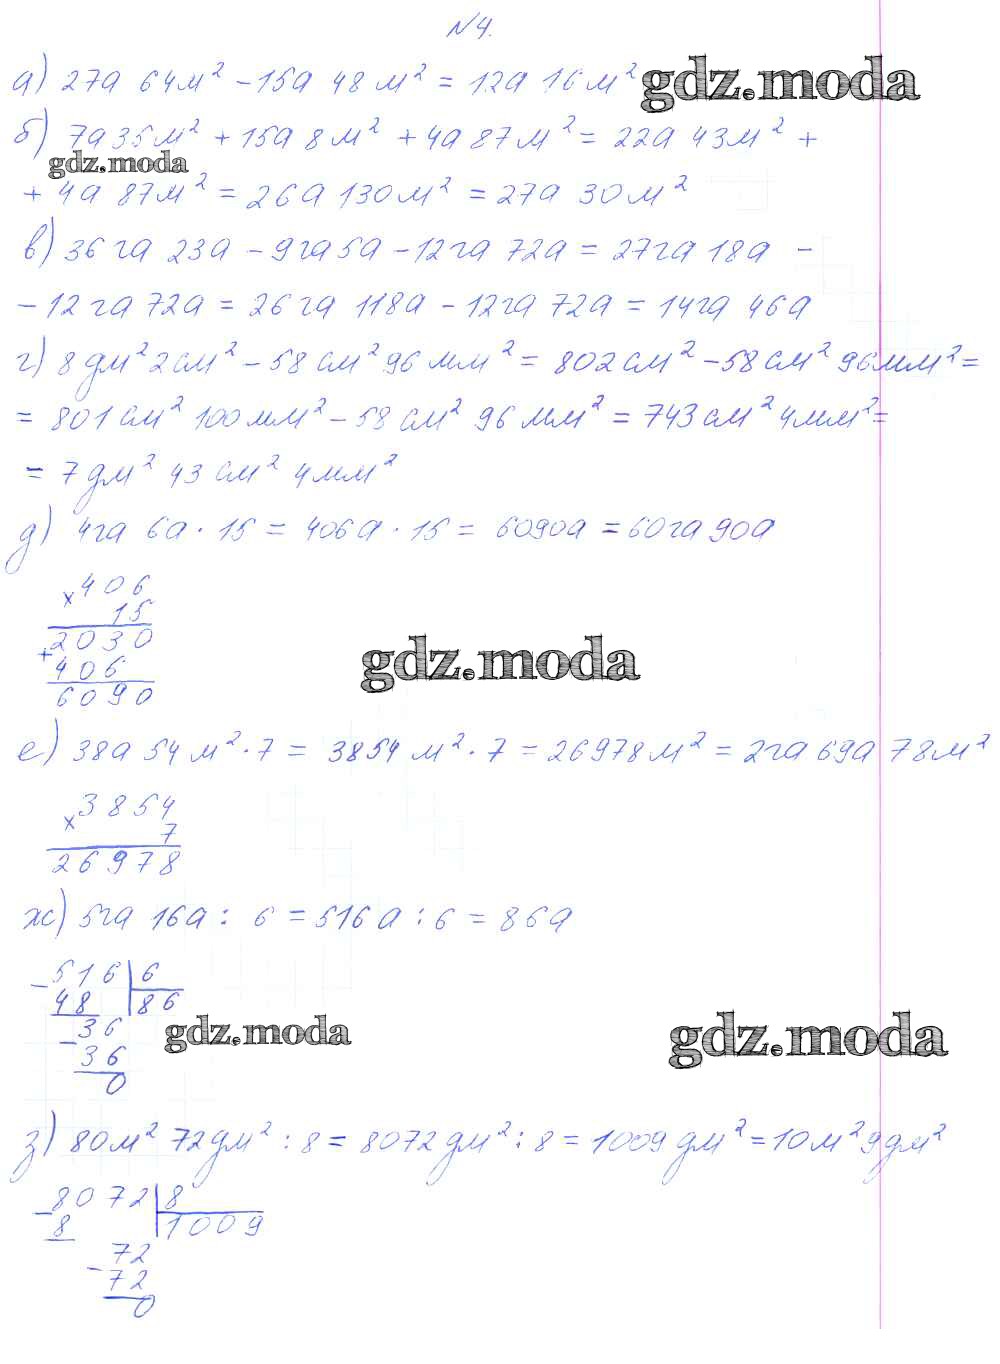 №4.
а) 27а 64м² - 15а 48м² = 12а 16м² gdz.moda
б) 7а 35м² + 15а 8м² + 4а 87м² = 22а 43м² +
gdz.moda
+ 4а 87м² = 26а 130м² = 27а 30м²
в) 36га 23а - 9га 5а - 12га 72а = 27га 18а -
- 12га 72а = 26га 118а - 12га 72а = 14га 46а
г) 8дм² 2см² - 58см² 96мм² = 802см² - 58см² 96мм² =
= 801см² 100мм² - 58см² 96мм² = 743см² 4мм² =
= 7дм² 43см² 4мм²
д) 4га 6а · 15 = 406а · 15 = 6090а = 60га 90а
× 406
15
2030
+ 406
6090
gdz.moda
е) 38а 54м² · 7 = 3854м² · 7 = 26978м² = 2га 69а 78м²
× 3854
7
26978
ж) 5га 16а : 6 = 516а : 6 = 86а
- 516 | 6
48 | 86
- 36
36
0
gdz.moda
gdz.moda
з) 80м² 72дм² : 8 = 8072дм² : 8 = 1009дм² = 10м² 9дм²
- 8072 | 8
8 | 1009
- 72
72
0